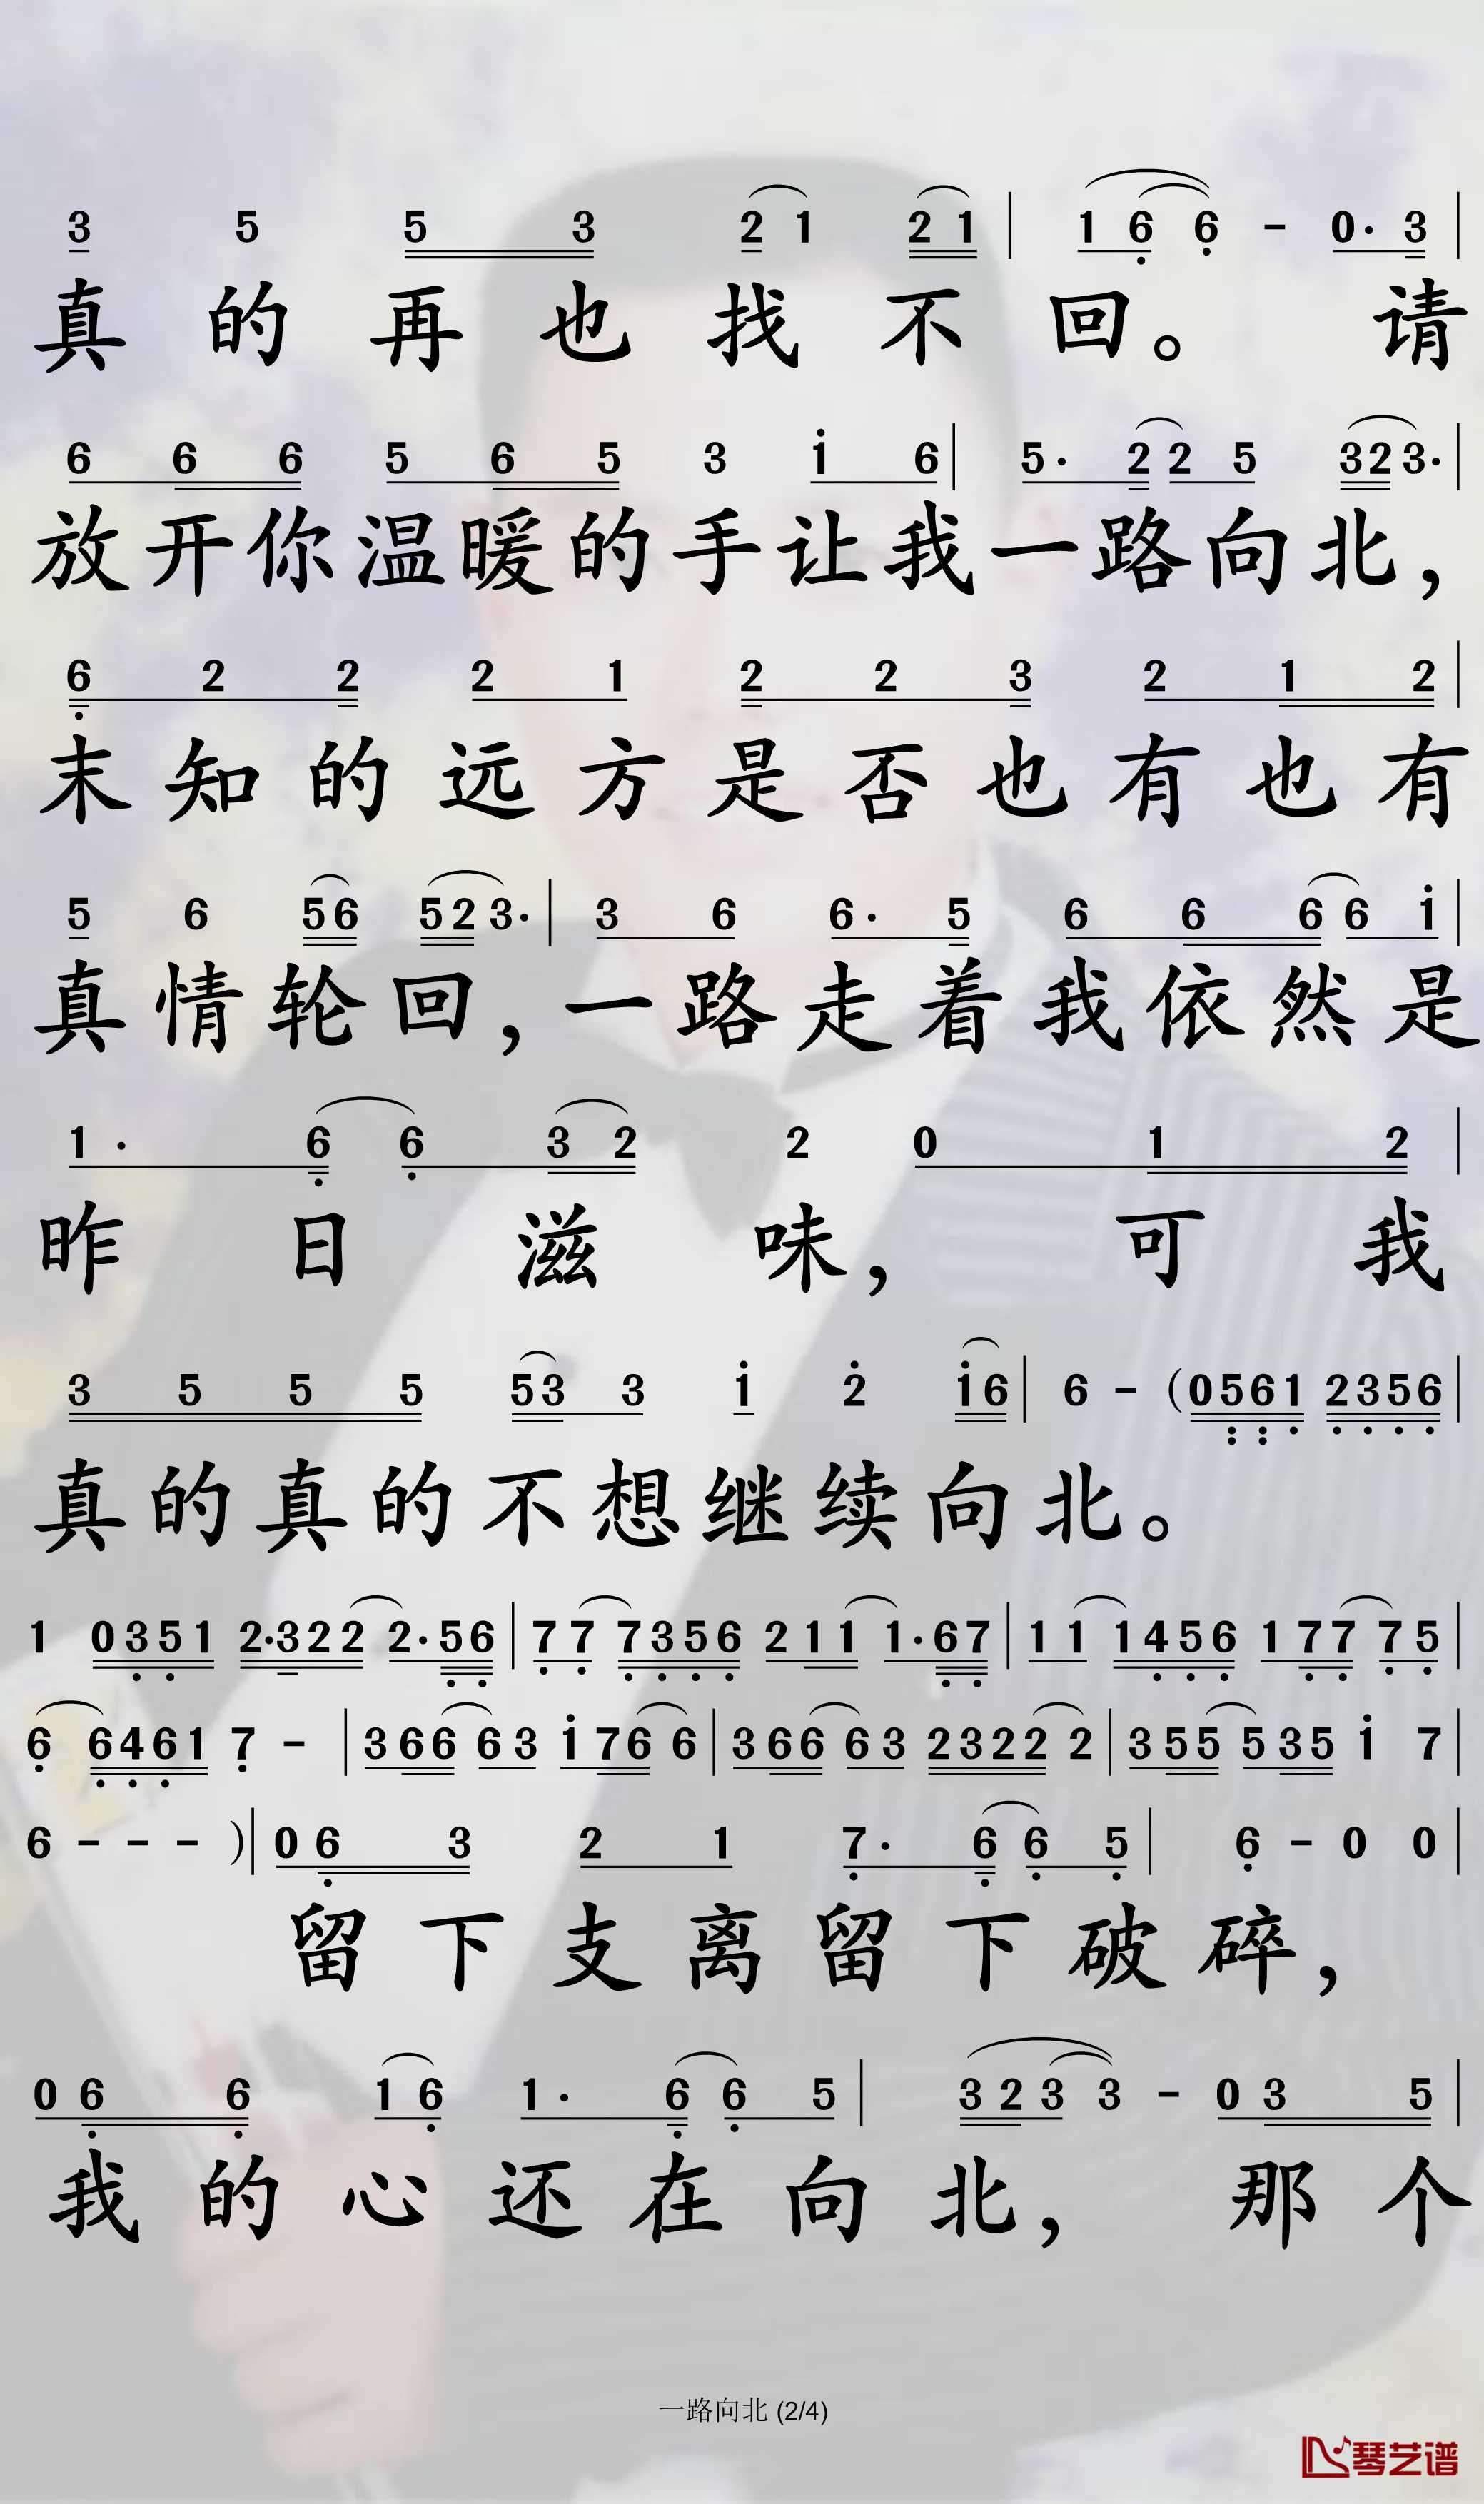 3 5 5 3 2 1 2 1 | 1 6 6 - 0· 3 |
真的再也找不回。 请
6 6 6 5 6 5 3 1 6 | 5· 2 2 5 3 2 3· |
放开你温暖的手让我一路向北，
6 2 2 2 1 2 2 3 2 1 2 |
末知的远方是否也有也有
5 6 5 6 5 2 3· | 3 6 6· 5 6 6 6 6 1 |
真情轮回，一路走着我依然是
1· 6 6 3 2 2 0 1 2 |
昨日滋味， 可我
3 5 5 5 5 3 3 1 2 1 6 | 6 - (0 5 6 1 2 3 5 6 |
真的真的不想继续向北。
1 0 3 5 1 2· 3 2 2 2· 5 6 | 7 7 7 3 5 6 2 1 1 1· 6 7 | 1 1 1 4 5 6 1 7 7 7 5 |
6 6 4 6 1 7 - | 3 6 6 6 3 1 7 6 6 | 3 6 6 6 3 2 3 2 2 2 | 3 5 5 5 3 5 1 7 |
6 - - - )| 0 6 3 2 1 7· 6 6 5 | 6 - 0 0 |
留下支离留下破碎，
0 6 6 1 6 1· 6 6 5 | 3 2 3 3 - 0 3 5 |
我的心还在向北， 那个
一路向北 (2/4)
琴艺谱